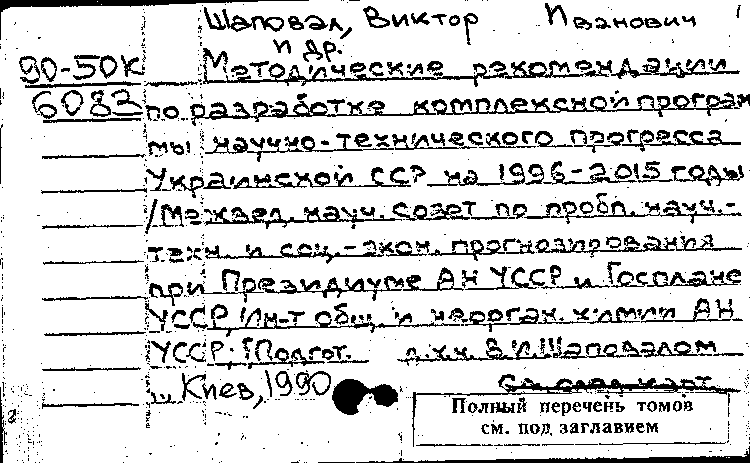 Шаповал, Виктор Иванович
и др.
90-50к Методические рекомендации
6083 по разработке комплексной програм
мы научно-технического прогресса
Украинской ССР на 1996-2015 годы
/Межвед. науч. совет по пробл. науч.-
техн. и соц.-экон. прогнозирования
при Президиуме АН УССР и Госплане
УССР, Ин-т общ. и неорган. химии АН
УССР; [Подгот. д.х.н. В.И.Шаповалом
Киев, 1990
См. след. карт.
Полный перечень томов
см. под заглавием
2